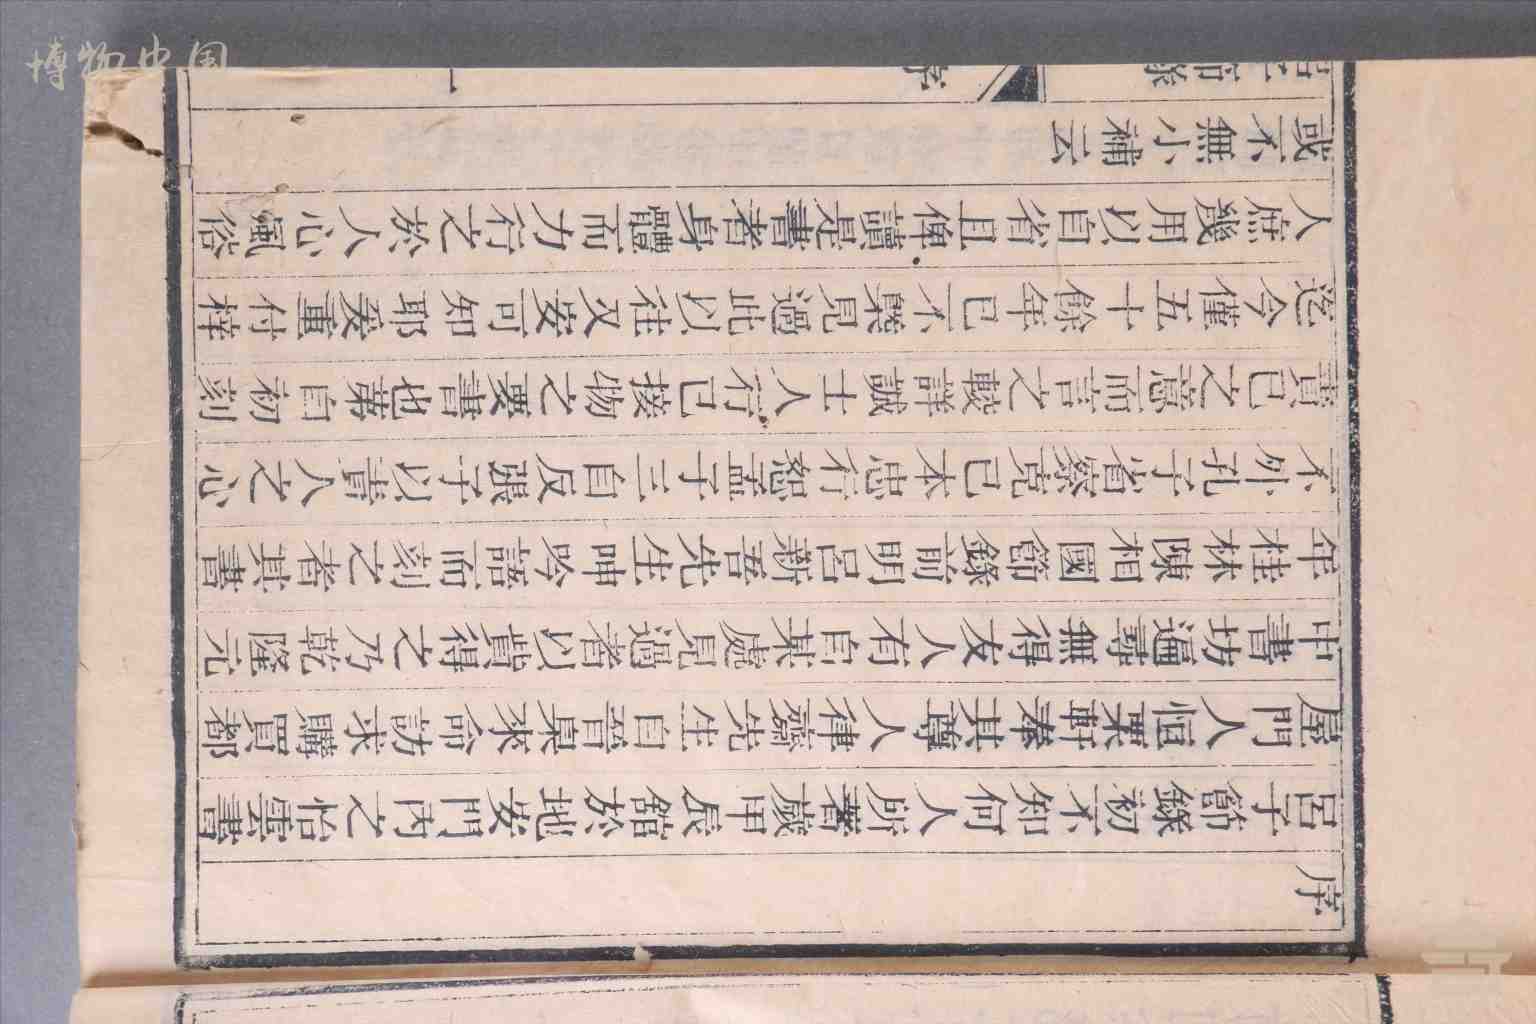 序
呂子節錄初不知何人所著歲甲辰館於地安門內之怡雲書
屋門人恒栗軒奉其尊人律齋先生自晉臬來命訪求購買都
中書坊遍尋無得友人有自某處見過者以貲得之乃乾隆元
年桂林陳相國節錄前明呂新吾先生呻吟語而刻之者其書
不外孔子省察克己本忠行恕孟子三自反張子以責人之心
責己之意而言之較詳誠士人行己接物之要書也第自初刻
迄今僅五十餘年已不槩見過此以往又安可知耶爰重付梓
人庶幾用以自省且俾讀是書者身體而力行之於人心風俗
或不無小補云
呂子節錄
序
一
博物中国